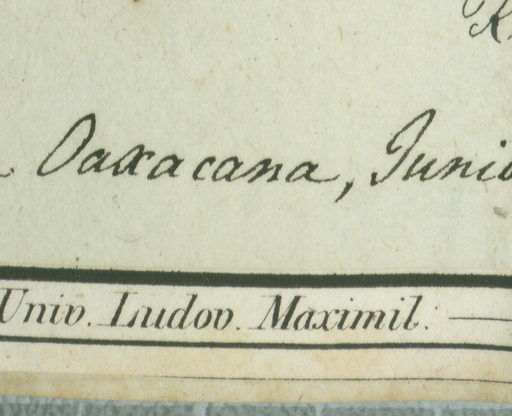 Oaxacana, Junio
Univ. Ludov. Maximil: